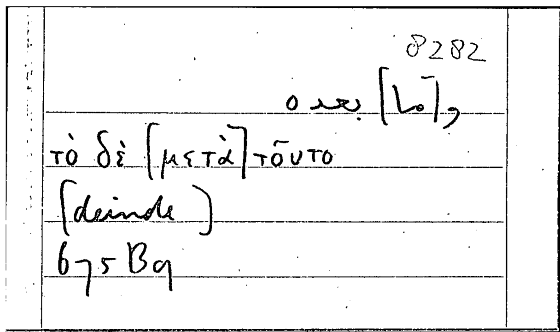 8282
ο [ ],
τὸ δὲ [μετὰ] τοῦτο
[deinde]
675 B9